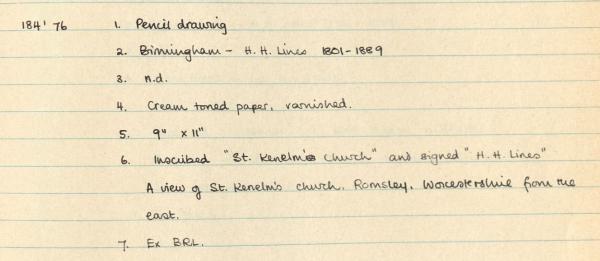 184' 76 1. Pencil drawing
2. Birmingham - H.H. Lines 1801-1889
3. n.d.
4. Cream toned paper, varnished.
5. 9" x 11"
6. Inscribed "St. Kenelm's church" and signed "H.H. Lines"
A view of St. Kenelm's church, Romsley, Worcestershire from the
east.
7. Ex BRL.